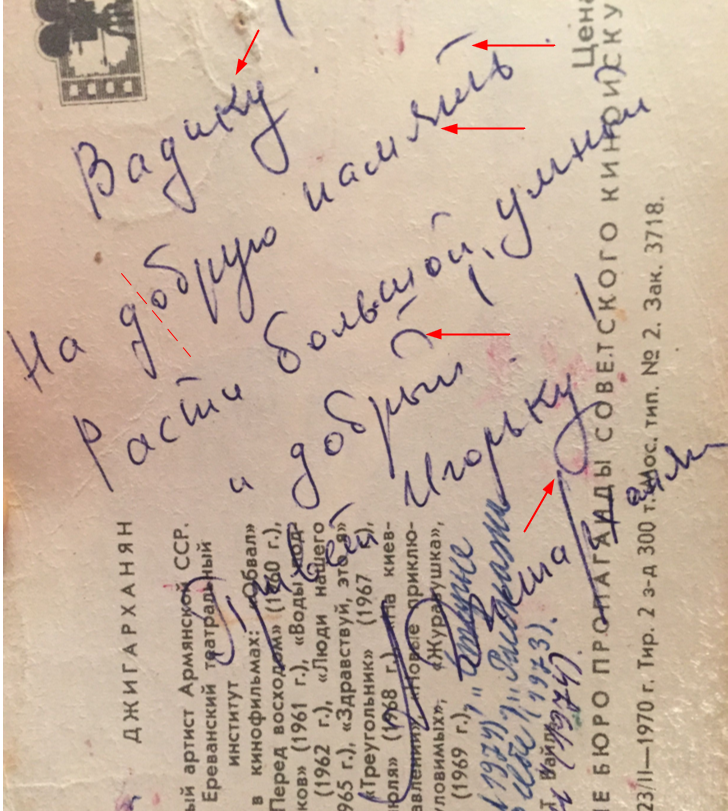 Вадику!
На добрую память.
Расти большой, умный
и добрый!
Игорьку
ДЖИГАРХАНЯН
ый артист Армянской ССР.
Ереванский театральный
институт
в кинофильмах: «Обвал»
Перед восходом» (1960 г.),
ков» (1961 г.), «Воды под-
(1962 г.), «Люди нашего
965 г.), «Здравствуй, это я»
«Треугольник» (1967 г.),
июля» (1968 г.), «На киев-
авлении», «Новые приклю-
уловимых», «Журавушка»,
(1969 г.)
Е БЮРО ПРОПАГАНДЫ СОВЕТСКОГО КИНОИСКУ
Цена
23.III—1970 г. Тир. 2 з-д 300 т. Мос. тип. № 2. Зак. 3718.